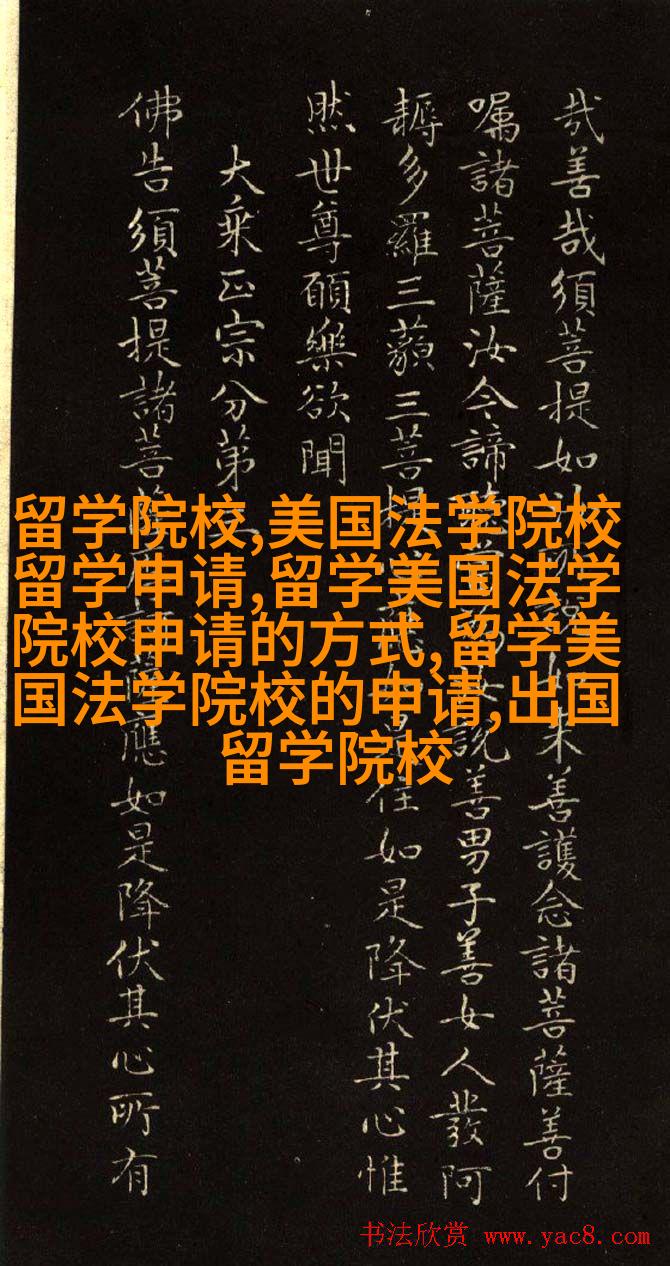 哉善哉須菩提如汝所說如来善護念諸菩薩善付
囑諸菩薩汝今諦聽當為汝說善男子善女人發阿
耨多羅三藐三菩提應如是住如是降伏其心惟
然世尊願樂欲聞
大乗正宗分第三
佛告須菩提諸菩薩摩訶薩應如是降伏其心所有
留学院校,美国法学院校
留学申请,留学美国法学
院校申请的方式,留学美
国法学院校的申请,出国
留学院校
书法欣赏 www.yac8.com